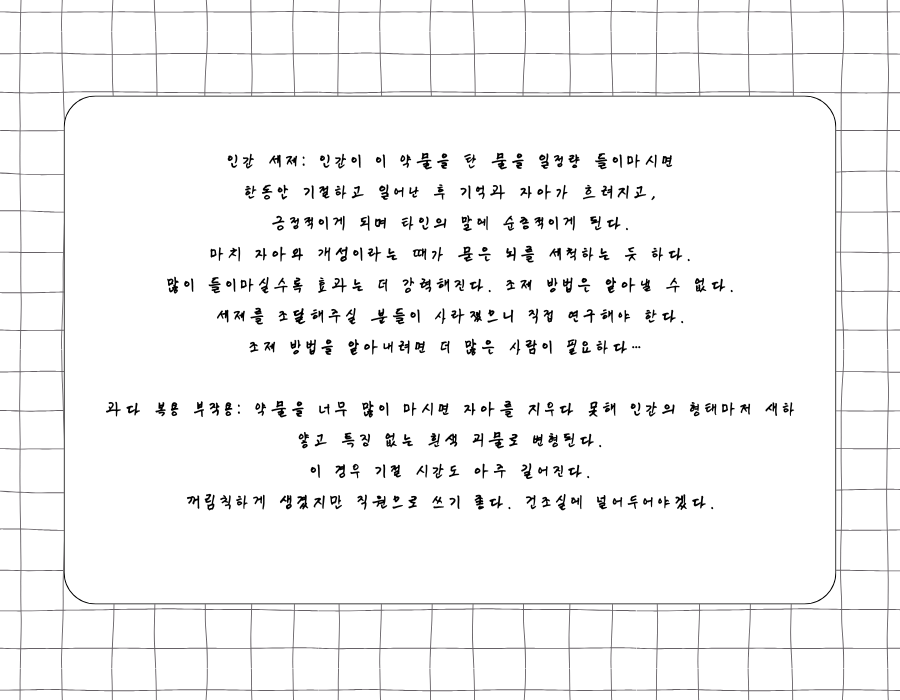 인간 세제: 인간이 이 약물을 탄 물을 일정량 들이마시면
한동안 기절하고 일어난 후 기억과 자아가 흐려지고,
긍정적이게 되며 타인의 말에 순종적이게 된다.
마치 자아와 개성이라는 때가 묻은 뇌를 세척하는 듯 하다.
많이 들이마실수록 효과는 더 강력해진다. 조제 방법은 알아낼 수 없다.
세제를 조달해주실 분들이 사라졌으니 직접 연구해야 한다.
조제 방법을 알아내려면 더 많은 사람이 필요하다…
과다 복용 부작용: 약물을 너무 많이 마시면 자아를 지우다 못해 인간의 형태마저 새하
얗고 특징 없는 흰색 괴물로 변형된다.
이 경우 기절 시간도 아주 길어진다.
꺼림칙하게 생겼지만 직원으로 쓰기 좋다. 건조실에 널어두어야겠다.